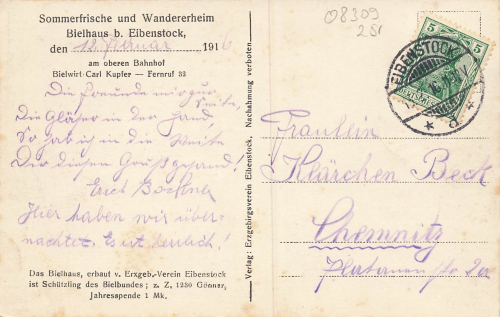 Sommerfrische und Wandererheim
Bielhaus b. Eibenstock,
den 12. Februar 1916
am oberen Bahnhof
Bielwirt Carl Kupfer — Fernruf 33
Die Freunde mir zur Seite,
Die Gläser in der Hand,
So hab ich in die Weite
Dir diesen Gruß gesandt!
Erich
Hier haben wir über-
nachtet. Es ist herrlich!
Das Bielhaus, erbaut v. Erzgeb.-Verein Eibenstock
ist Schützling des Bielbundes; z. Z. 1230 Gönner,
Jahresspende 1 Mk.
Verlag: Erzgebirgsverein Eibenstock. Nachahmung verboten.
08309
251
5 5
EIBENSTOCK
Fräulein
Klärchen Beck
Chemnitz
Platanenstr. 2a